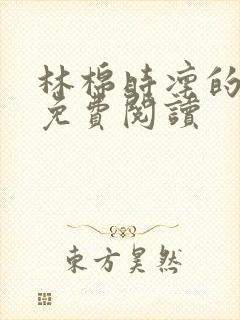 林棉時凜的
免費閱讀
東方昊然